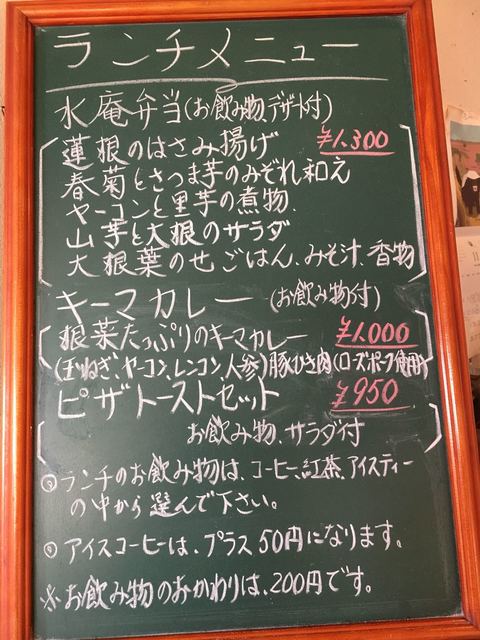 ランチメニュー
水庵弁当(お飲み物、デザート付)
蓮根のはさみ揚げ ¥1,300
春菊とさつま芋のみぞれ和え
ヤーコンと里芋の煮物、
山芋と大根のサラダ
大根葉のせごはん、みそ汁、香物
キーマカレー (お飲み物付)
根菜たっぷりのキーマカレー ¥1,000
(玉ねぎ、ヤーコン、レンコン、人参)豚ひき肉(ローズポーク使用)
ピザトーストセット ¥950
お飲み物、サラダ付
ランチのお飲み物は、コーヒー、紅茶、アイスティー
の中から選んで下さい。
アイスコーヒーは、プラス50円になります。
※お飲み物のおかわりは、200円です。